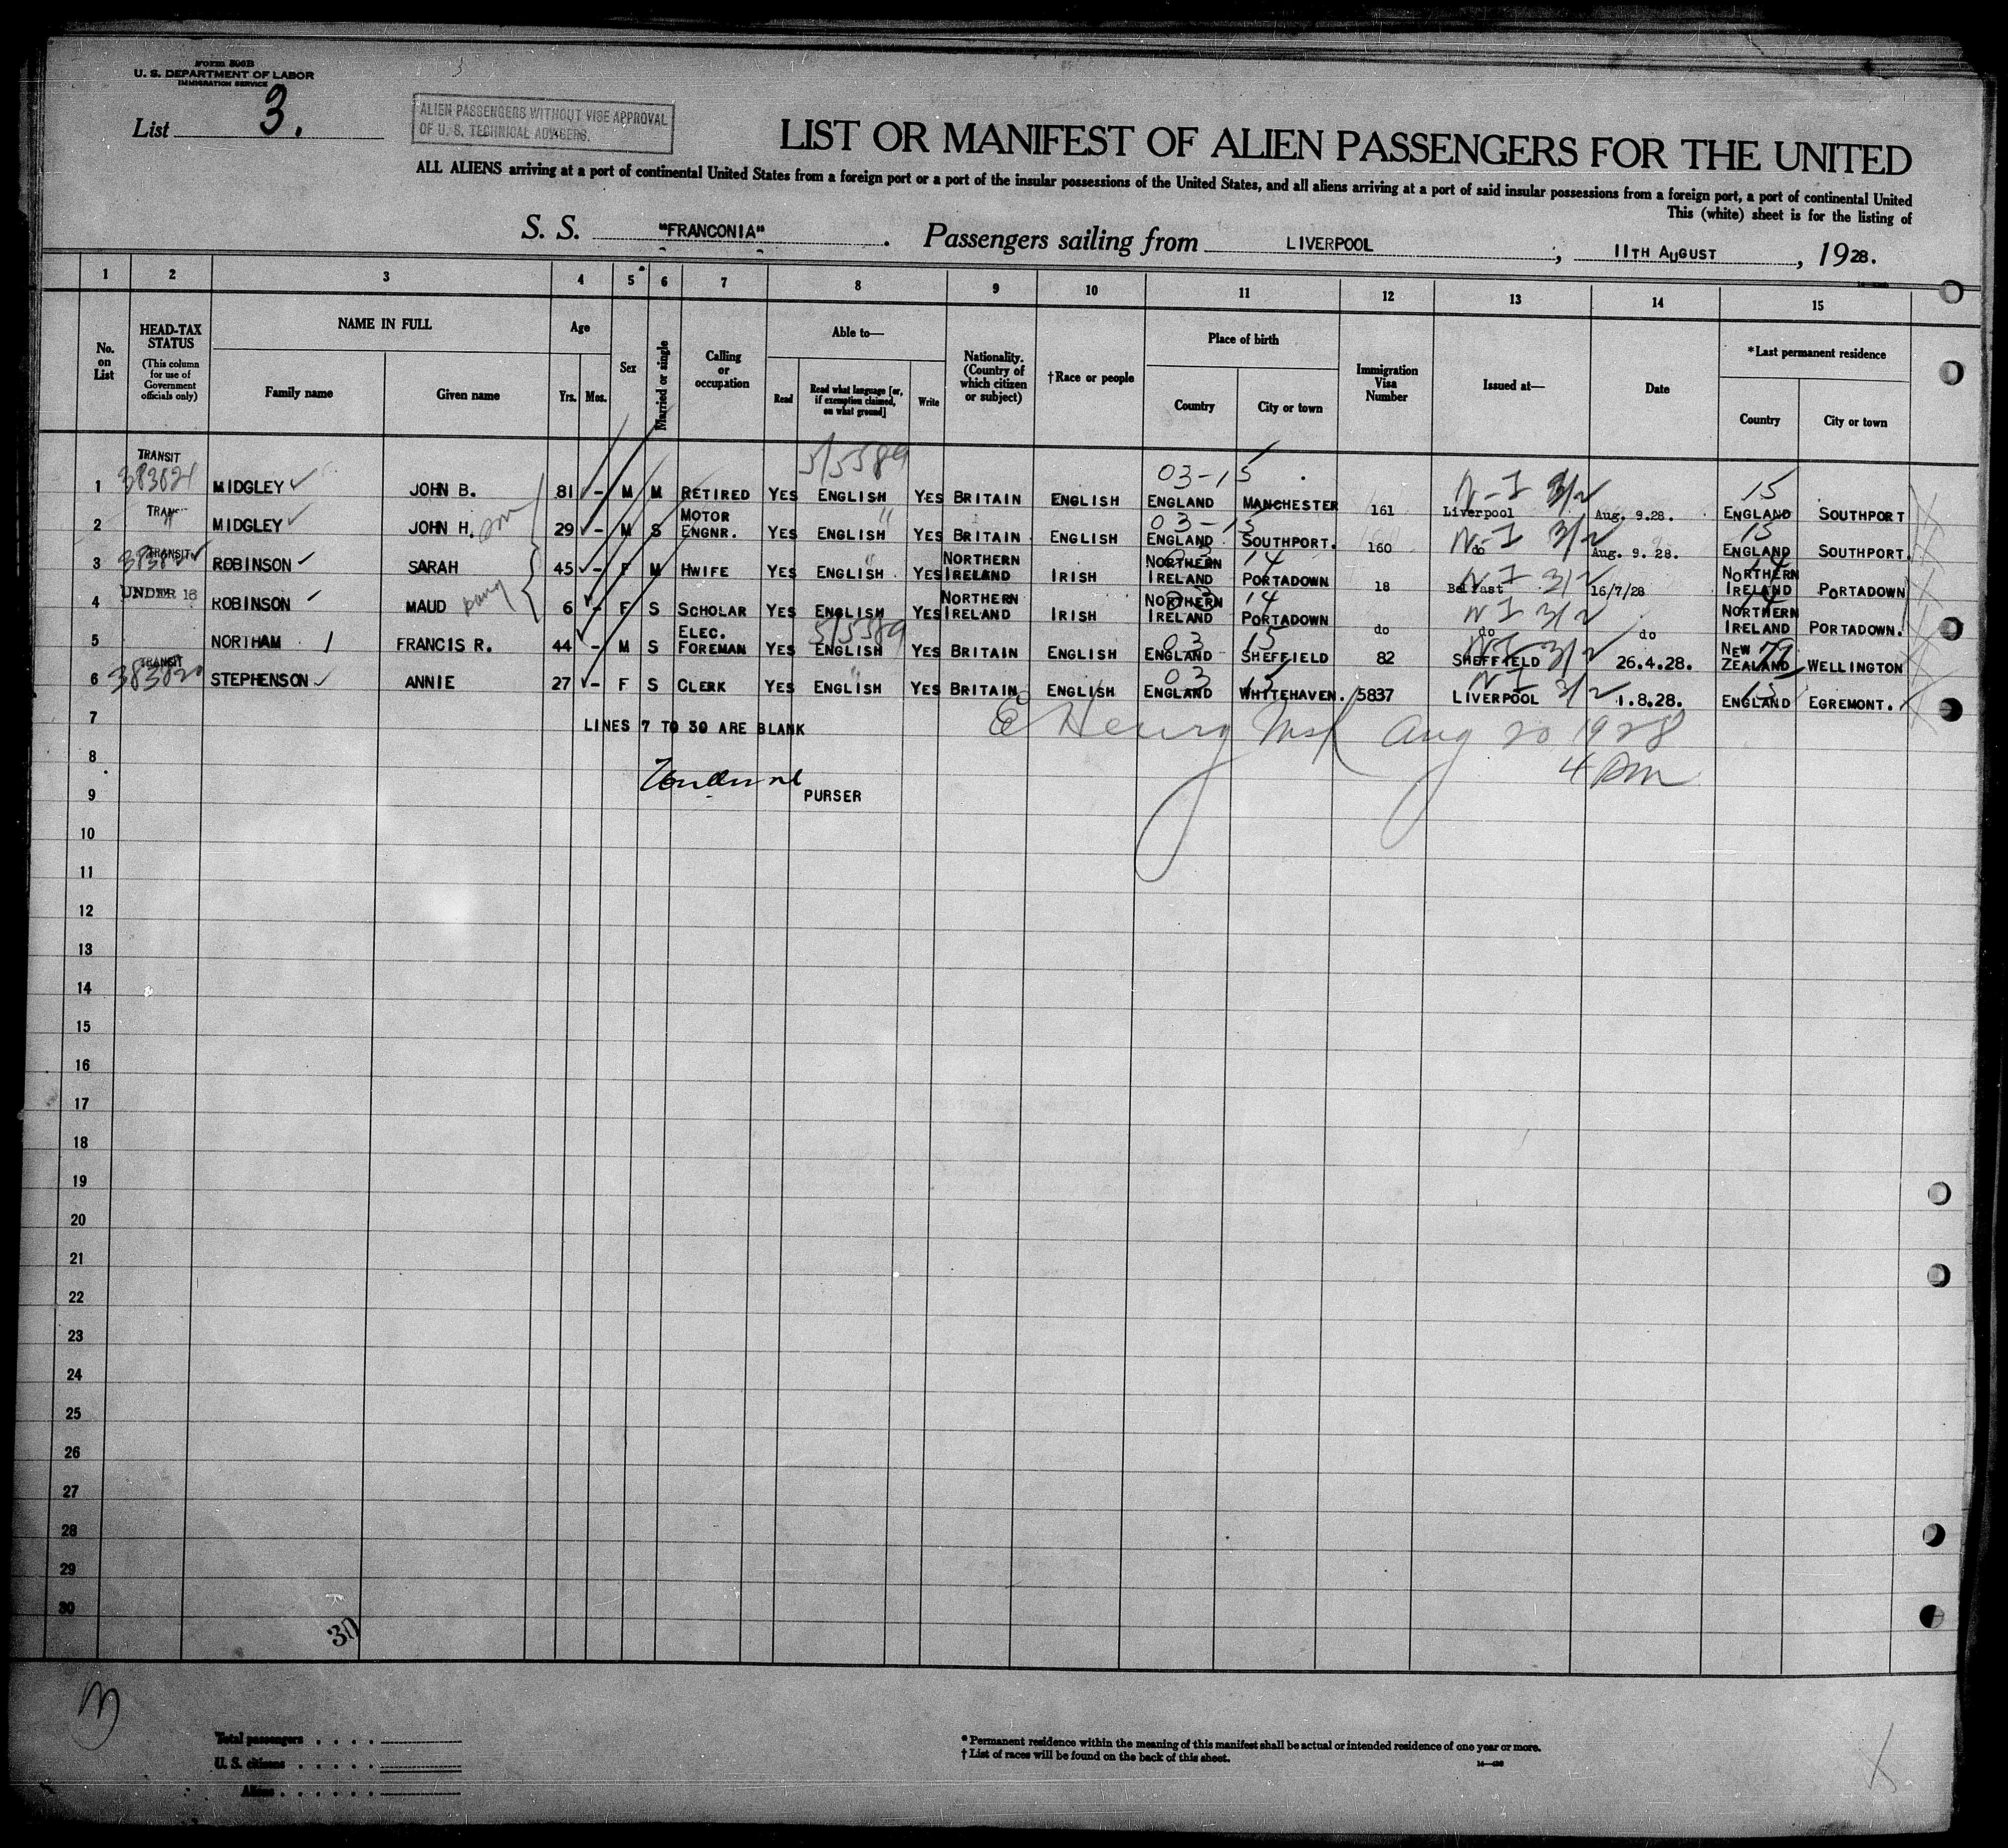 Form 500B
U. S. DEPARTMENT OF LABOR
IMMIGRATION SERVICE
List 3.
ALIEN PASSENGERS WITHOUT VISE APPROVAL
OF U. S. TECHNICAL ADVISERS.
LIST OR MANIFEST OF ALIEN PASSENGERS FOR THE UNITED
ALL ALIENS arriving at a port of continental United States from a foreign port or a port of the insular possessions of the United States, and all aliens arriving at a port of said insular possessions from a foreign port, a port of continental United
This (white) sheet is for the listing of
S. S. "FRANCONIA". Passengers sailing from LIVERPOOL, 11TH AUGUST, 1928.
1 2 3 4 5 6 7 8 9 10 11 12 13 14 15
No. on List
HEAD-TAX STATUS (This column for use of Government officials only)
NAME IN FULL
Family name Given name
Age
Yrs. Mos.
Sex
Married or single
Calling or occupation
Able to—
Read Read what language [or, if exemption claimed, on what ground] Write
Nationality. (Country of which citizen or subject)
†Race or people
Place of birth
Country City or town
Immigration Visa Number
Issued at—
Date
*Last permanent residence
Country City or town
5/5389 03-15 N-I 3/2 15
1 TRANSIT 383821 MIDGLEY JOHN B. 81 - M M RETIRED YES ENGLISH YES BRITAIN ENGLISH ENGLAND MANCHESTER 161 Liverpool Aug. 9.28. ENGLAND SOUTHPORT
" 03-15 N-I 3/2 15
2 TRANSIT MIDGLEY JOHN H. 29 - M S MOTOR ENGNR. YES ENGLISH YES BRITAIN ENGLISH ENGLAND SOUTHPORT. 160 do Aug. 9. 28. ENGLAND SOUTHPORT.
" 03 14 N I 3/2 14
3 TRANSIT ROBINSON SARAH 45 - F M HWIFE YES ENGLISH YES NORTHERN IRELAND IRISH NORTHERN IRELAND PORTADOWN 18 Belfast 16/7/28 NORTHERN IRELAND PORTADOWN
03 14 N I 3/2 14
4 UNDER 16 ROBINSON MAUD 6 - F S SCHOLAR YES ENGLISH YES NORTHERN IRELAND IRISH NORTHERN IRELAND PORTADOWN do do do NORTHERN IRELAND PORTADOWN.
5/5389 03 15 N-I 3/2
5 NORTHAM FRANCIS R. 44 - M S ELEC. FOREMAN YES ENGLISH YES BRITAIN ENGLISH ENGLAND SHEFFIELD 82 SHEFFIELD 26.4.28. NEW ZEALAND WELLINGTON
" 03 15 N I 3/2 15
6 TRANSIT 383820 STEPHENSON ANNIE 27 - F S CLERK YES ENGLISH YES BRITAIN ENGLISH ENGLAND WHITEHAVEN. 5837 LIVERPOOL 1.8.28. ENGLAND EGREMONT.
7 LINES 7 TO 30 ARE BLANK E Henry Aug 20 1928
8 4 pm
9 PURSER
10
11
12
13
14
15
16
17
18
19
20
21
22
23
24
25
26
27
28
29
30
30
Total passengers
U. S. citizens
Aliens
* Permanent residence within the meaning of this manifest shall be actual or intended residence of one year or more.
† List of races will be found on the back of this sheet.